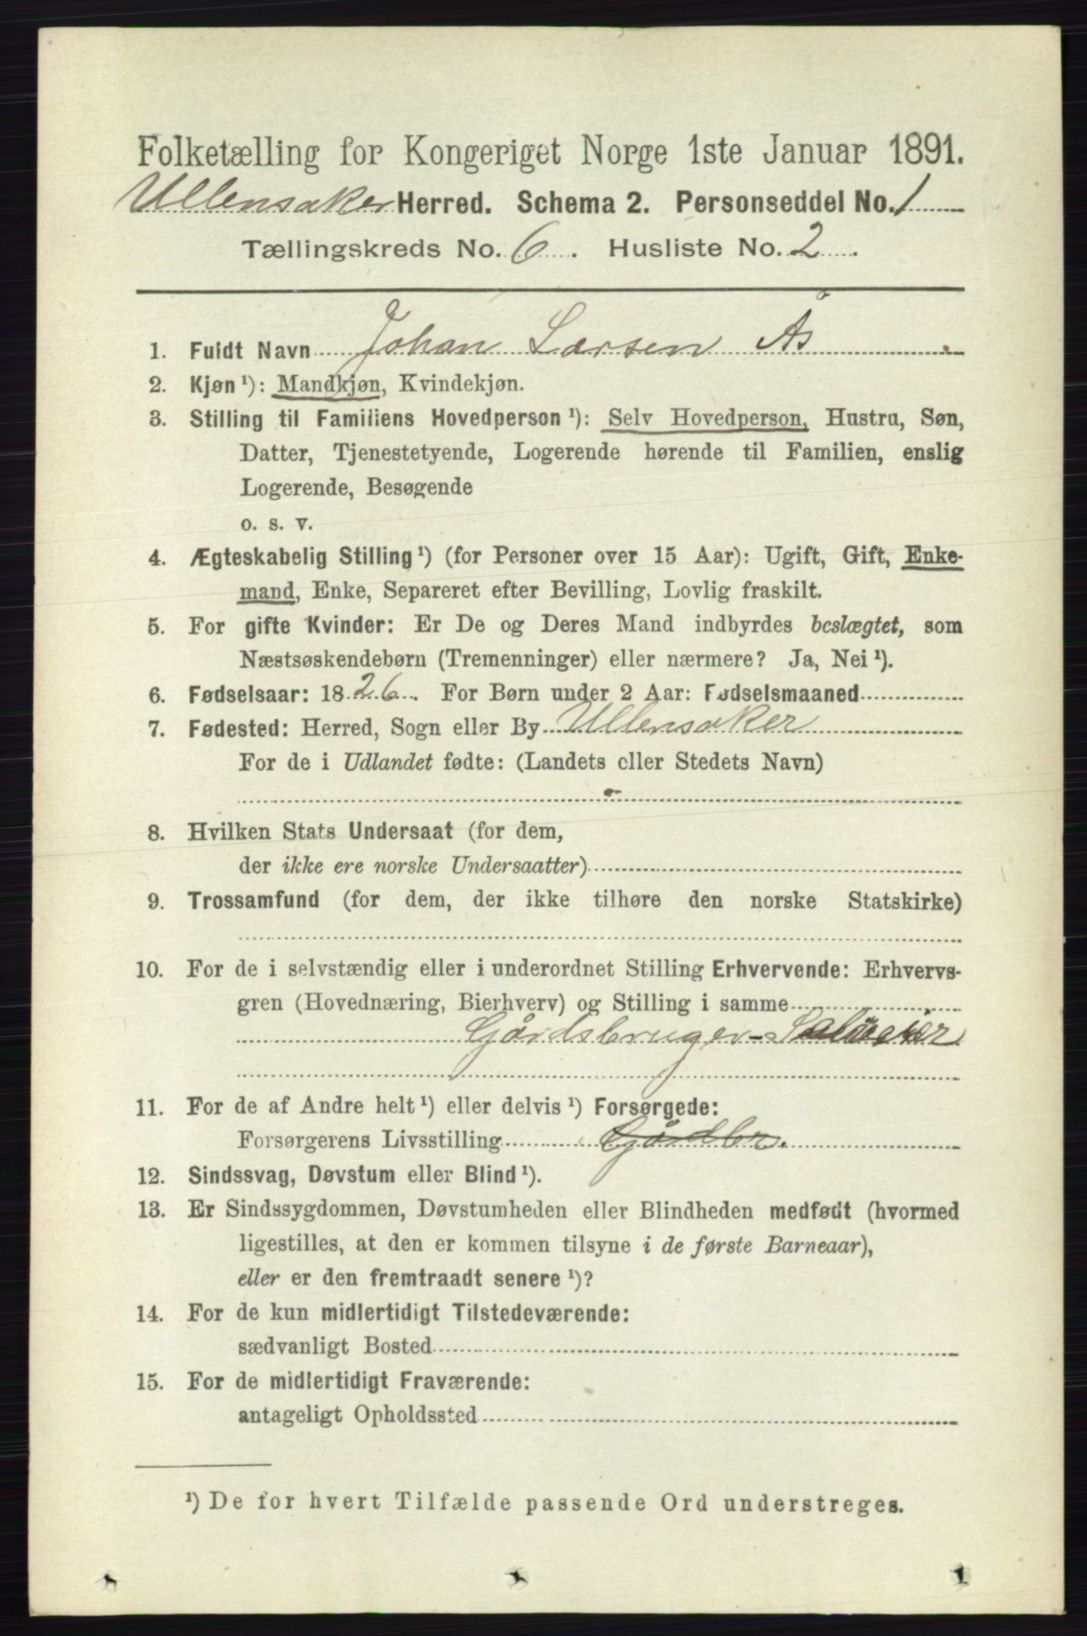 Folketælling for Kongeriget Norge 1ste Januar 1891.
Ullensaker Herred. Schema 2. Personseddel No. 1
Tællingskreds No. 6. Husliste No. 2.
1. Fuldt Navn Johan Larsen Ås
2. Kjøn¹): Mandkjøn, Kvindekjøn.
3. Stilling til Familiens Hovedperson¹): Selv Hovedperson, Hustru, Søn,
Datter, Tjenestetyende, Logerende hørende til Familien, enslig
Logerende, Besøgende
o. s. v.
4. Ægteskabelig Stilling¹) (for Personer over 15 Aar): Ugift, Gift, Enke-
mand, Enke, Separeret efter Bevilling, Lovlig fraskilt.
5. For gifte Kvinder: Er De og Deres Mand indbyrdes beslægtet, som
Næstsøskendebørn (Tremenninger) eller nærmere? Ja, Nei¹).
6. Fødselsaar: 1826. For Børn under 2 Aar: Fødselsmaaned
7. Fødested: Herred, Sogn eller By Ullensaker
For de i Udlandet fødte: (Landets eller Stedets Navn)
8. Hvilken Stats Undersaat (for dem,
der ikke ere norske Undersaatter)
9. Trossamfund (for dem, der ikke tilhøre den norske Statskirke)
10. For de i selvstændig eller i underordnet Stilling Erhvervende: Erhvervs-
gren (Hovednæring, Bierhverv) og Stilling i samme
Gårdsbruger-Selveier
11. For de af Andre helt¹) eller delvis¹) Forsørgede:
Forsørgerens Livsstilling Gårdbr.
12. Sindssvag, Døvstum eller Blind¹).
13. Er Sindssygdommen, Døvstumheden eller Blindheden medfødt (hvormed
ligestilles, at den er kommen tilsyne i de første Barneaar),
eller er den fremtraadt senere¹)?
14. For de kun midlertidigt Tilstedeværende:
sædvanligt Bosted
15. For de midlertidigt Fraværende:
antageligt Opholdssted
¹) De for hvert Tilfælde passende Ord understreges.